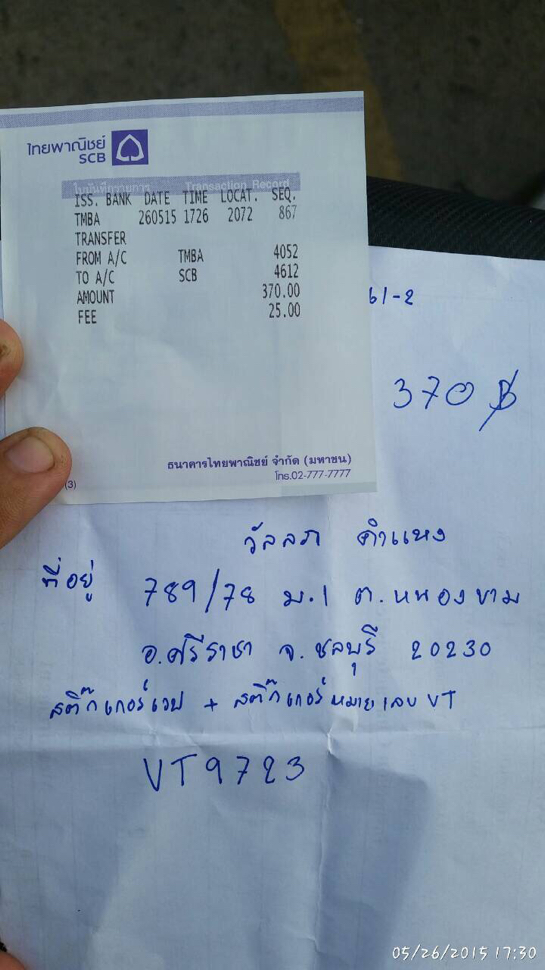 ไทยพาณิชย์
SCB
ใบบันทึกรายการ Transaction Record
ISS. BANK DATE TIME LOCAT. SEQ.
TMBA 260515 1726 2072 867
TRANSFER
FROM A/C TMBA 4052
TO A/C SCB 4612
AMOUNT 370.00
FEE 25.00
ธนาคารไทยพาณิชย์ จำกัด (มหาชน)
โทร.02-777-7777
(3)
61-2
370 ฿
วัลลภ คำแหง
ที่อยู่ 789/78 ม.1 ต.หนองขาม
อ.ศรีราชา จ.ชลบุรี 20230
สติ๊กเกอร์เวป + สติ๊กเกอร์หมายเลข VT
VT9723
05/26/2015 17:30